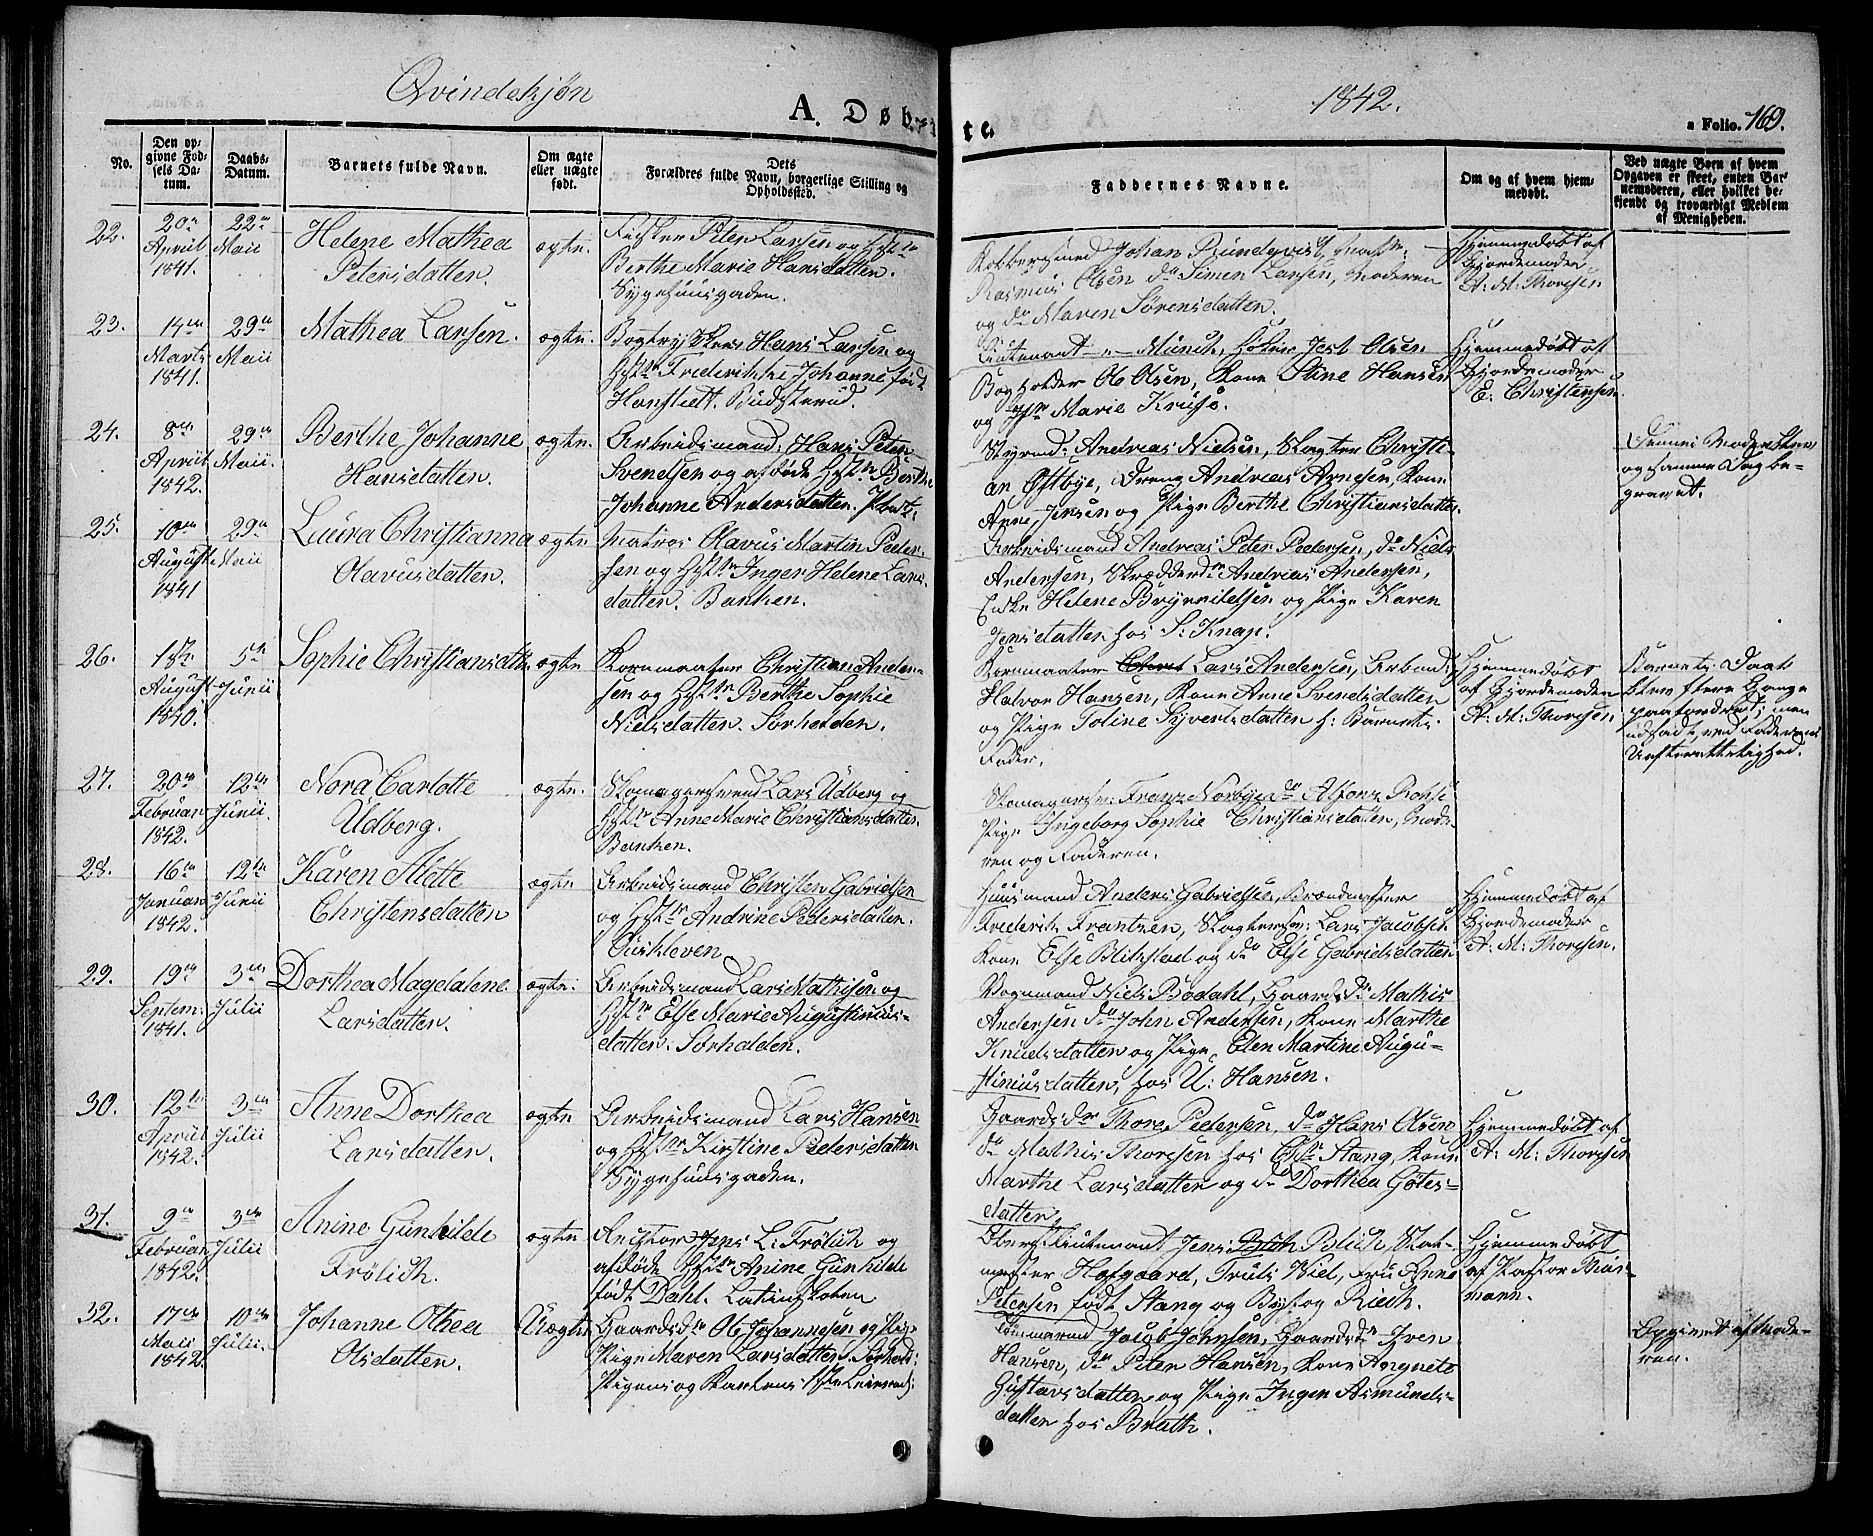 Qvindekjøn
A. Døbte.
1842.
a Folio. 169.
No.
Den opgivne Fødsels Datum.
Daabs-Datum.
Barnets fulde Navn.
Om ægte eller uægte født.
Dets Forældres fulde Navn, borgerlige Stilling og Opholdssted.
Faddernes Navne.
Om og af hvem hjemmedøbt.
Ved uægte Børn af hvem Opgaven er skeet, enten Barnemoderen, eller hvilket bekjendt og troværdigt Medlem af Menigheden.
22.
20de April 1841.
22de Maii
Helene Mathea
Petersdatter.
ægte.
Fisker Peter Larsen og Hst.
Berthe Marie Hansdatter.
Sygehuusgaden.
Johan Rundqvist,
Rasmus Olsen do Simen Larsen, Moderen
og do Maren Sørensdatter.
Hjemmedøbt af
Gjordemoder
A. M. Thoresen
23.
14de Marts 1841.
29de Maii
Mathea Larsen.
ægte.
Bogtrykker Hans Larsen og
Hst. Frederikke Johanne født
Lieutenant -"- Munch, Høker Jest Olsen
Bogholder Ole Olsen, Kone Stine Hansen
og Marie Kruse.
Hjemmedøbt af
Gjordemoder
E. Christensen.
24.
8de April 1842.
29de Maii.
Berthe Johanne
Hansdatter.
ægte.
Arbeidsmand Hans Peter
Svendsen og afdøde Hst. Berthe
Johanne Andersdatter.
Styrmd: Andreas Nielsen, Slagter Christi-
an Østbye, Dreng Andreas Arnesen, Kone
Anne Jensen og Pige Berthe Christiansdatter.
Dennes Moder blev
og samme Dag be-
gravet.
25.
10de August 1841
29de Maii
Laura Christianna
Olavusdatter.
ægte
Matros Olavus Martin Peder-
sen og Hst. Inger Helene Lars-
datter. Banken.
Arbeidsmand Andreas Peter Pedersen, do Niels
Andersen, Skrædder Andreas Andersen,
Enke Helene Brynnildsen og Pige Karen
Jensdatter hos S. Knap.
26.
18de August 1840.
5te Junii
Sophie Christiansdtr
ægte
Kornmaaler Christian Ander-
sen og Hst. Berthe Sophie
Nielsdatter. Sørhalden.
Kornmaaler Lars Andersen, Arbmd:
Halvor Hansen, Kone Anne Svendsdatter
og Pige Toline Syvertsdatter f. Barnets
Fader.
Hjemmedøbt
af Gjordemoder
A. M. Thoresen
Barnets Daab
blev flere Gange
paafordret, men
udsadt, ved Faderens
Uefterrettelighed.
27.
20de Februar 1842.
12te Junii.
Nora Carlotte
Udberg.
ægte.
Skomagersvend Lars Udberg og
Hst. Anne Marie Christiansdatter.
Banken.
Skomagersv: Franz Norbye do Alfons
Pige Ingeborg Sophie Christiansdatter, Mode-
ren og Faderen.
28.
16de Januar 1842.
12te Junii
Karen Mette
Christensdatter
ægte
Arbeidsmand Christen Gabrielsen
og Hst. Andrine Pedersdatter.
Huusmand Anders Gabrielsen, Brændmester
Frederik Frantzen, Slagtersv: Lars Jacobsen
Kone Else Blikstad og do Else Gabrielsdatter
Hjemmedøbt af
Gjordemoder
A. M. Thoresen.
29.
19de Septem: 1841.
3die Julii
Dorthea Magdalene
Larsdatter.
ægte.
Arbeidsmand Lars Mathisen og
Hst. Else Marie Augustinius-
datter. Sørhalden.
Vognmand Niels Bødahl, Gaardsdr Mathis
Andersen do John Andersen, Kone Marthe
Knudsdatter og Pige Elen Martine Augu-
stinusdatter, hos U. Hansen.
30.
12te April 1842.
3die Julii
Anne Dorthea
Larsdatter.
ægte
Arbeidsmand Lars Hansen
og Hst. Kirstine Pedersdatter
Sygehuusgaden.
Gaardsdr Thore Pedersen, do Hans Olsen
do Mathis Thoresen hos Stang, Kone
Marthe Larsdatter og do Dorthea Gotes-
datter
Hjemmedøbt af
A. M. Thoresen
31.
9de Februar 1842.
3die Julii
Anine Gunhilde
Frölich.
ægte
Jens L. Frölich og
afdøde Hst. Anine Gunhilde
født Dahl.
Oberstlieutenant Jens Blich,
Hofgaard, Truls Wiel, Fru Anne
Petersen født Stang og Bysfog Riech.
Hjemmedøbt
af Pastor
32.
17de Maii 1842
10de Julii.
Johanne Othea
Olsdatter.
Uægte
Gaardsdr Ole Johannesen og
Pige Maren Larsdatter.
Pigens og Karlens 1ste Leiermaal.
Tømmermd Jacob Johnsen, Gaardsdr Iver
Hansen, do Peter Hansen, Kone Angnete
Gustavsdatter og Pige Inger Asmunds-
datter hos Brath.
Opgivet af Mode-
ren.